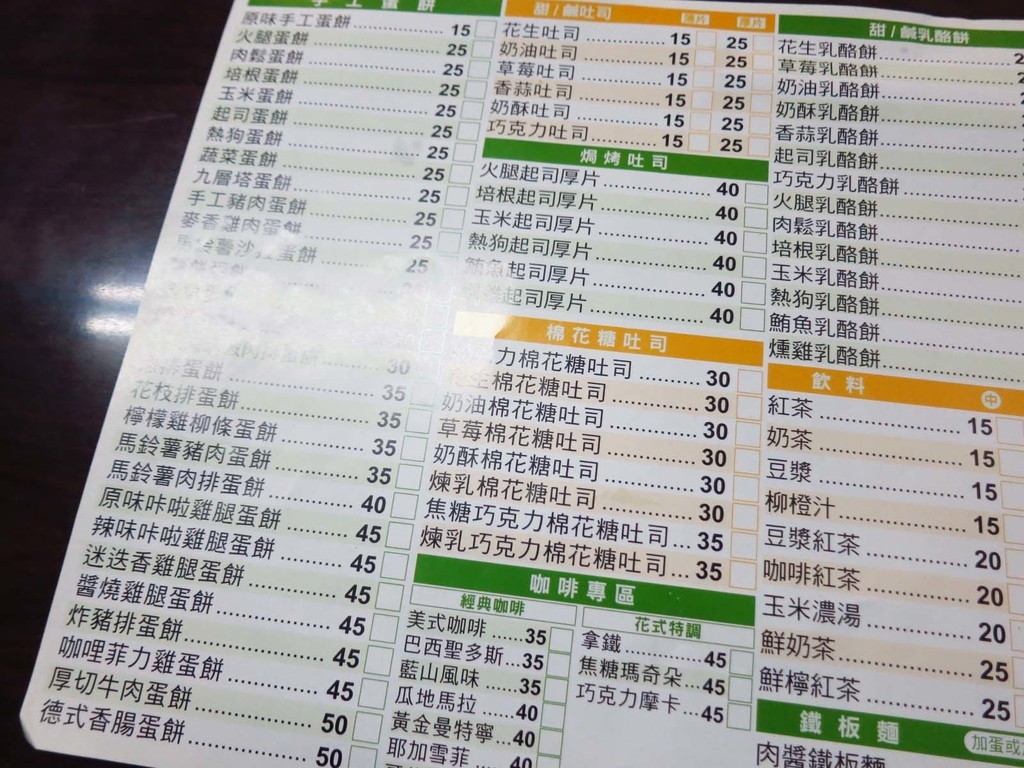 手工蛋餅
原味手工蛋餅 15
火腿蛋餅 25
肉鬆蛋餅 25
培根蛋餅 25
玉米蛋餅 25
起司蛋餅 25
熱狗蛋餅 25
蔬菜蛋餅 25
九層塔蛋餅 25
手工豬肉蛋餅 25
麥香雞肉蛋餅 25
薯沙 蛋餅 25
30
排蛋餅 35
花枝排蛋餅 35
檸檬雞柳條蛋餅 35
馬鈴薯豬肉蛋餅 35
馬鈴薯肉排蛋餅 40
原味咔啦雞腿蛋餅 45
辣味咔啦雞腿蛋餅 45
迷迭香雞腿蛋餅 45
醬燒雞腿蛋餅 45
炸豬排蛋餅 45
咖哩菲力雞蛋餅 45
厚切牛肉蛋餅 50
德式香腸蛋餅 50
甜/鹹吐司 薄片 厚片
花生吐司 15 25
奶油吐司 15 25
草莓吐司 15 25
香蒜吐司 15 25
奶酥吐司 15 25
巧克力吐司 15 25
焗烤吐司
火腿起司厚片 40
培根起司厚片 40
玉米起司厚片 40
熱狗起司厚片 40
鮪魚起司厚片 40
起司厚片 40
棉花糖吐司
力棉花糖吐司 30
生棉花糖吐司 30
奶油棉花糖吐司 30
草莓棉花糖吐司 30
奶酥棉花糖吐司 30
煉乳棉花糖吐司 30
焦糖巧克力棉花糖吐司 35
煉乳巧克力棉花糖吐司 35
咖啡專區
經典咖啡
美式咖啡 35
巴西聖多斯 35
藍山風味 35
瓜地馬拉 40
黃金曼特寧 40
耶加雪菲 40
花式特調
拿鐵 45
焦糖瑪奇朵 45
巧克力摩卡 45
甜/鹹乳酪餅
花生乳酪餅
草莓乳酪餅
奶油乳酪餅
奶酥乳酪餅
香蒜乳酪餅
起司乳酪餅
巧克力乳酪餅
火腿乳酪餅
肉鬆乳酪餅
培根乳酪餅
玉米乳酪餅
熱狗乳酪餅
鮪魚乳酪餅
燻雞乳酪餅
飲料 中
紅茶 15
奶茶 15
豆漿 15
柳橙汁 15
豆漿紅茶 20
咖啡紅茶 20
玉米濃湯 20
鮮奶茶 25
鮮檸紅茶 25
鐵板麵 加蛋或
肉醬鐵板麵